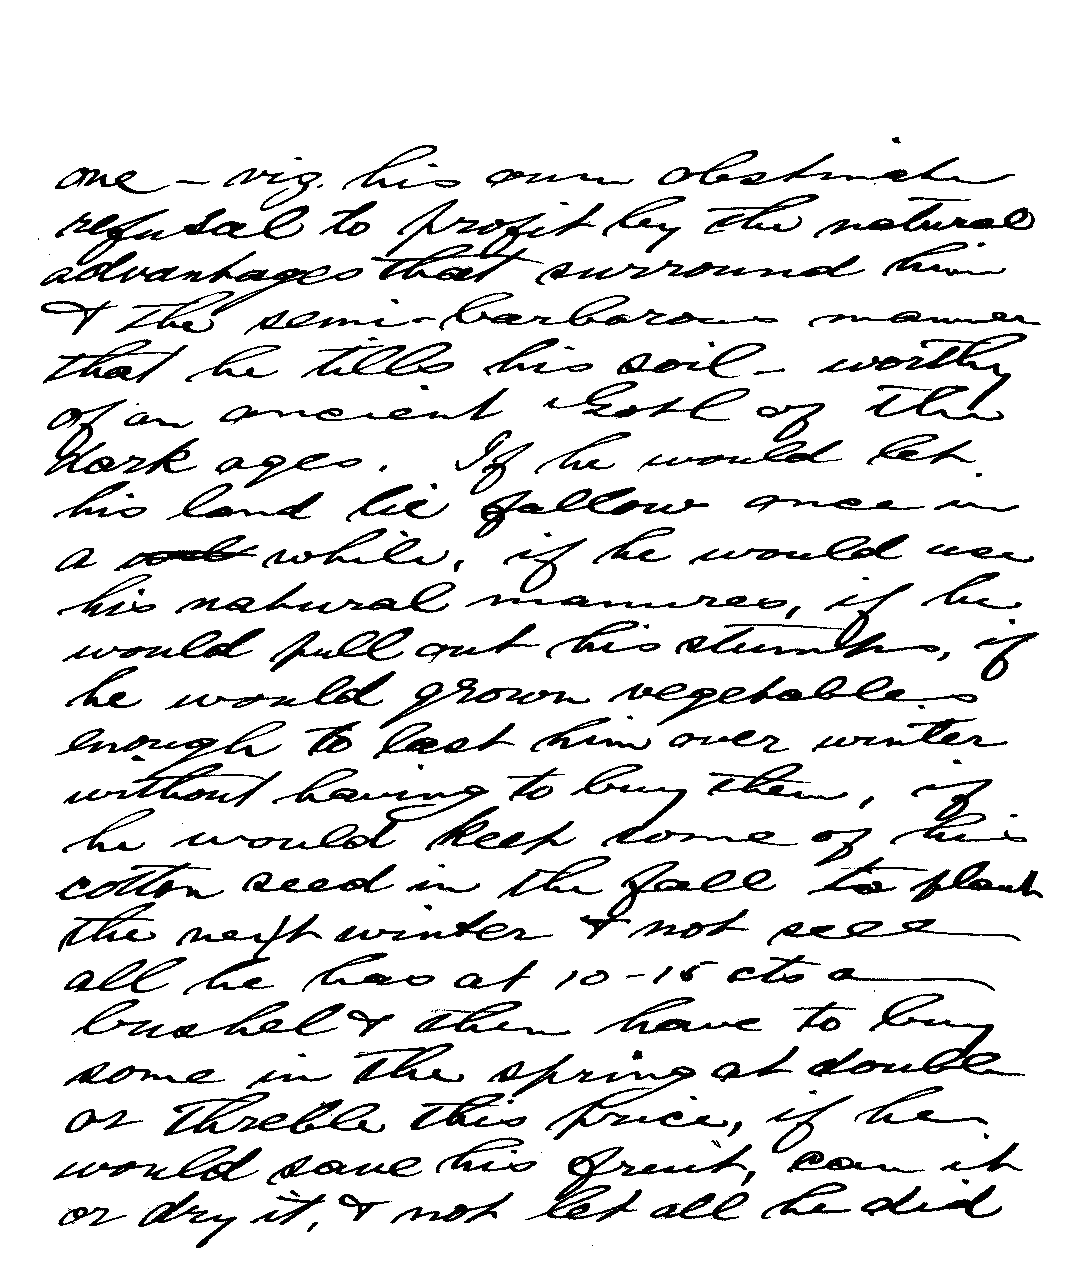 one – viz. his own obstinate
refusal to profit by the natural
advantages that surround him
& the semi-barbarous manner
that he tills his soil – worthy
of an ancient Goth of the
dark ages. If he would let
his land lie fallow once in
a while, if he would use
his natural manures, if he
would pull out his stumps, if
he would grown vegetables
enough to last him over winter
without having to buy them, if
he would keep some of his
cotton seed in the fall to plant
the next winter & not sell
all he has at 10-15 cts a
bushel & then have to buy
some in the spring at double
or threble this price, if he
would save his fruit, can it
or dry it, & not let all he did